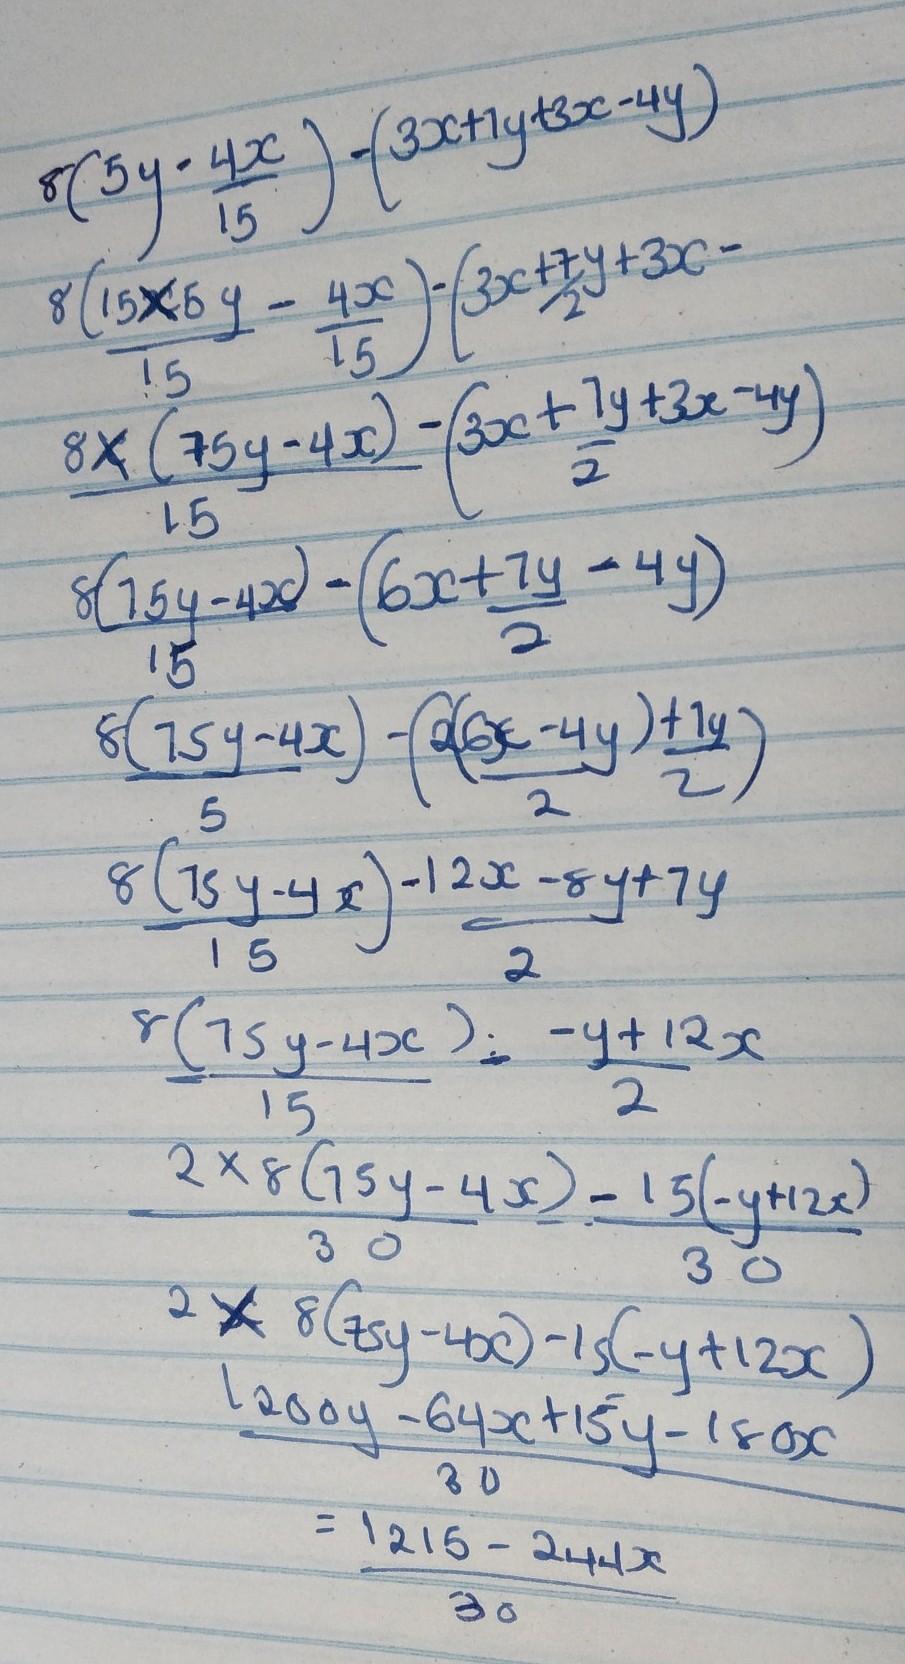 8(5y - 4x/15) - (3x+7y+3x-4y)
8(15×5y/15 - 4x/15) - (3x+7y/2+3x-
8×(75y-4x)/15 - (3x+7y/2+3x-4y)
8(75y-4x)/15 - (6x+7y/2-4y)
8(75y-4x)/5 - (2(6x-4y)/2+7y/2)
8(75y-4x)/15 - 12x-8y+7y/2
8(75y-4x)/15 - -y+12x/2
2×8(75y-4x)/30 - 15(-y+12x)/30
2×8(75y-4x)-15(-y+12x)
1200y-64x+15y-180x/30
= 1215-244x/30